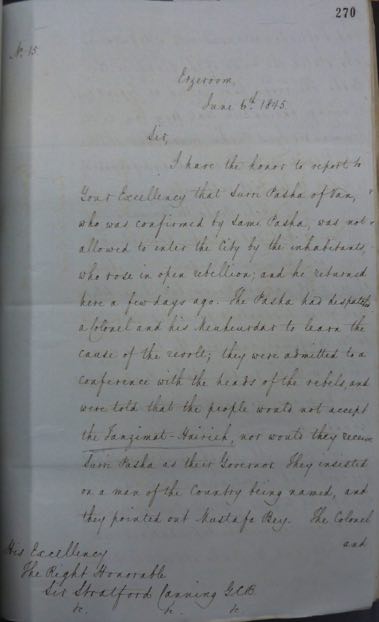 270
No. 15.
Erzeroom,
June 6th 1845.
Sir,
I have the honor to report to
Your Excellency that Surri Pasha of Van,
who was confirmed by Sami Pasha, was not
allowed to enter the City by the inhabitants,
who rose in open rebellion; and he returned
here a few days ago. The Pasha had despatched
a Colonel and his Muhurdar to learn the
cause of the revolt; they were admitted to a
conference with the heads of the rebels, and
were told that the people would not accept
the Tanzimat-Hairieh, nor would they receive
Surri Pasha as their Governor. They insisted
on a man of the Country being named, and
they pointed out Mustafa Bey. The Colonel
and
His Excellency
The Right Honorable
Sir Stratford Canning GCB
&c. &c. &c.